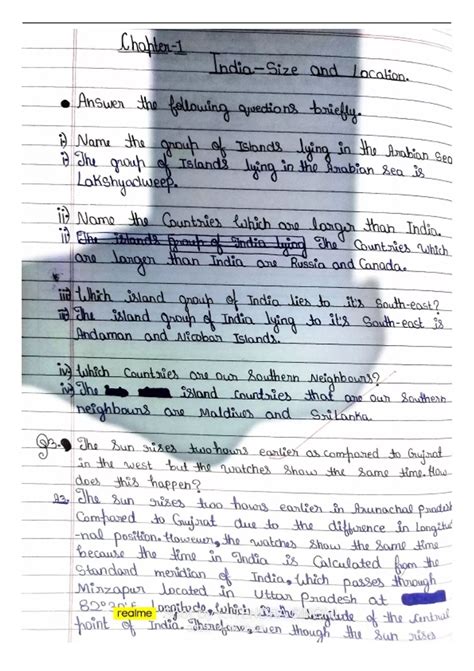 Chapter-1
India-Size and Location.
• Answer the following questions briefly.
i) Name the group of Islands lying in the Arabian Sea
i) The group of Islands lying in the Arabian Sea is
Lakshyadweep.
ii) Name the Countries which are larger than India.
ii) The islands group of India lying The Countries which
are larger than India are Russia and Canada.
iii) Which island group of India lies to it's South-east?
iii) The island group of India lying to it's South-east is
Andaman and Nicobar Islands.
iv) Which Countries are our Southern Neighbours?
iv) The island Countries that are our Southern
neighbours are Maldives and SriLanka
Q3. The Sun rises two hours earlier as compared to Gujrat
in the west but the watches show the same time. How
does this happen?
The Sun rises two hours earlier in Arunachal Pradesh
Compared to Gujrat due to the difference in Longitud
-nal position. However, the watches show the same time
because the time in India is Calculated from the
Standard meridian of India, Which passes through
Mirzapur located in Uttar Pradesh at
realme Longitude, which is the longitude of the Central
point of India. Therefore, even though the Sun rises